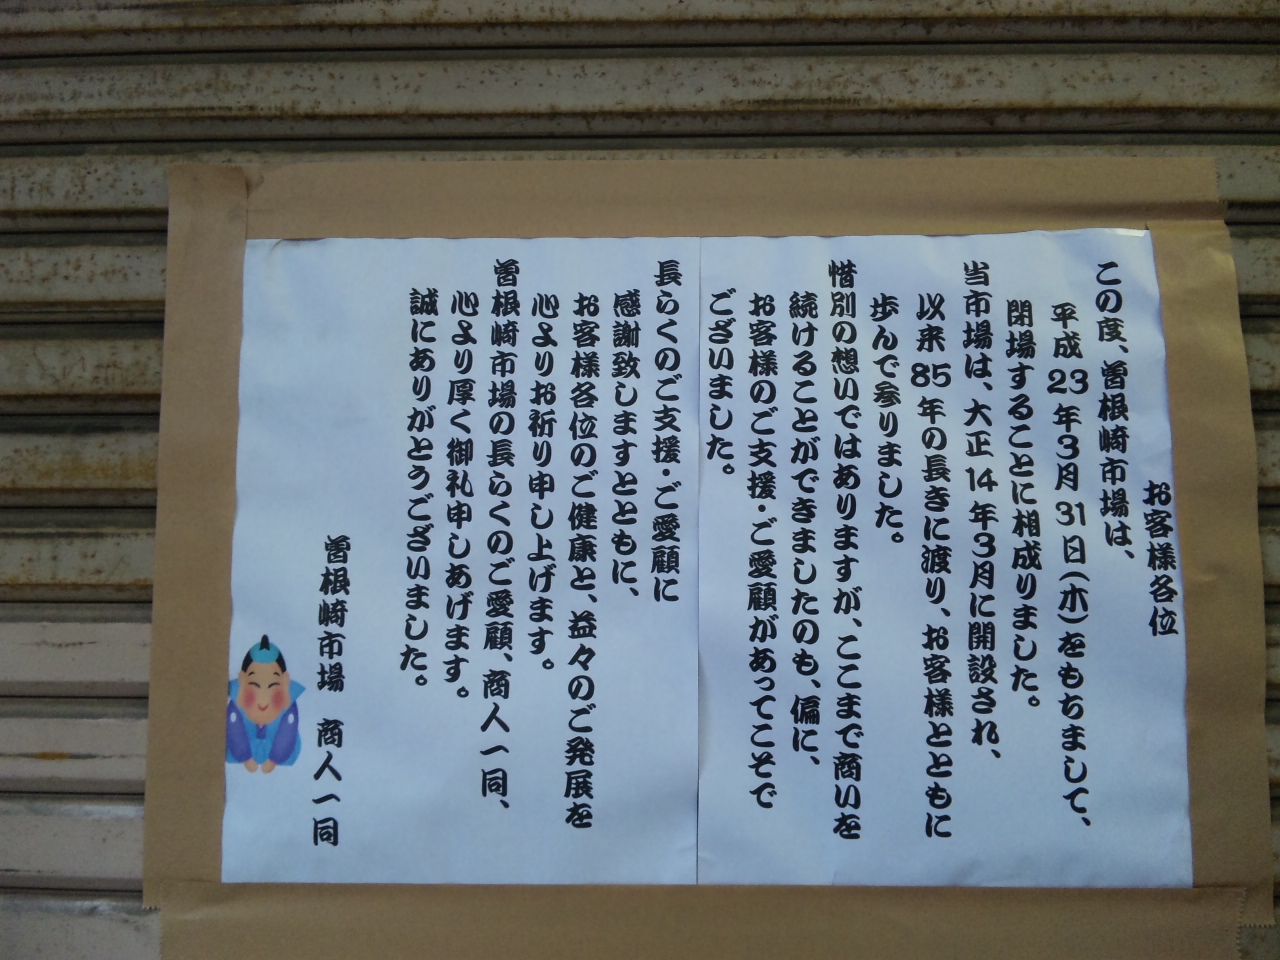 お客様各位
この度、曽根崎市場は、
平成23年3月31日(木)をもちまして、
閉場することに相成りました。
当市場は、大正14年3月に開設され、
以来85年の長きに渡り、お客様とともに
歩んで参りました。
惜別の想いではありますが、ここまで商いを
続けることができましたのも、偏に、
お客様のご支援・ご愛顧があってこそで
ございました。
長らくのご支援・ご愛顧に
感謝致しますとともに、
お客様各位のご健康と、益々のご発展を
心よりお祈り申し上げます。
曽根崎市場の長らくのご愛顧、商人一同、
心より厚く御礼申しあげます。
誠にありがとうございました。
曽根崎市場 商人一同